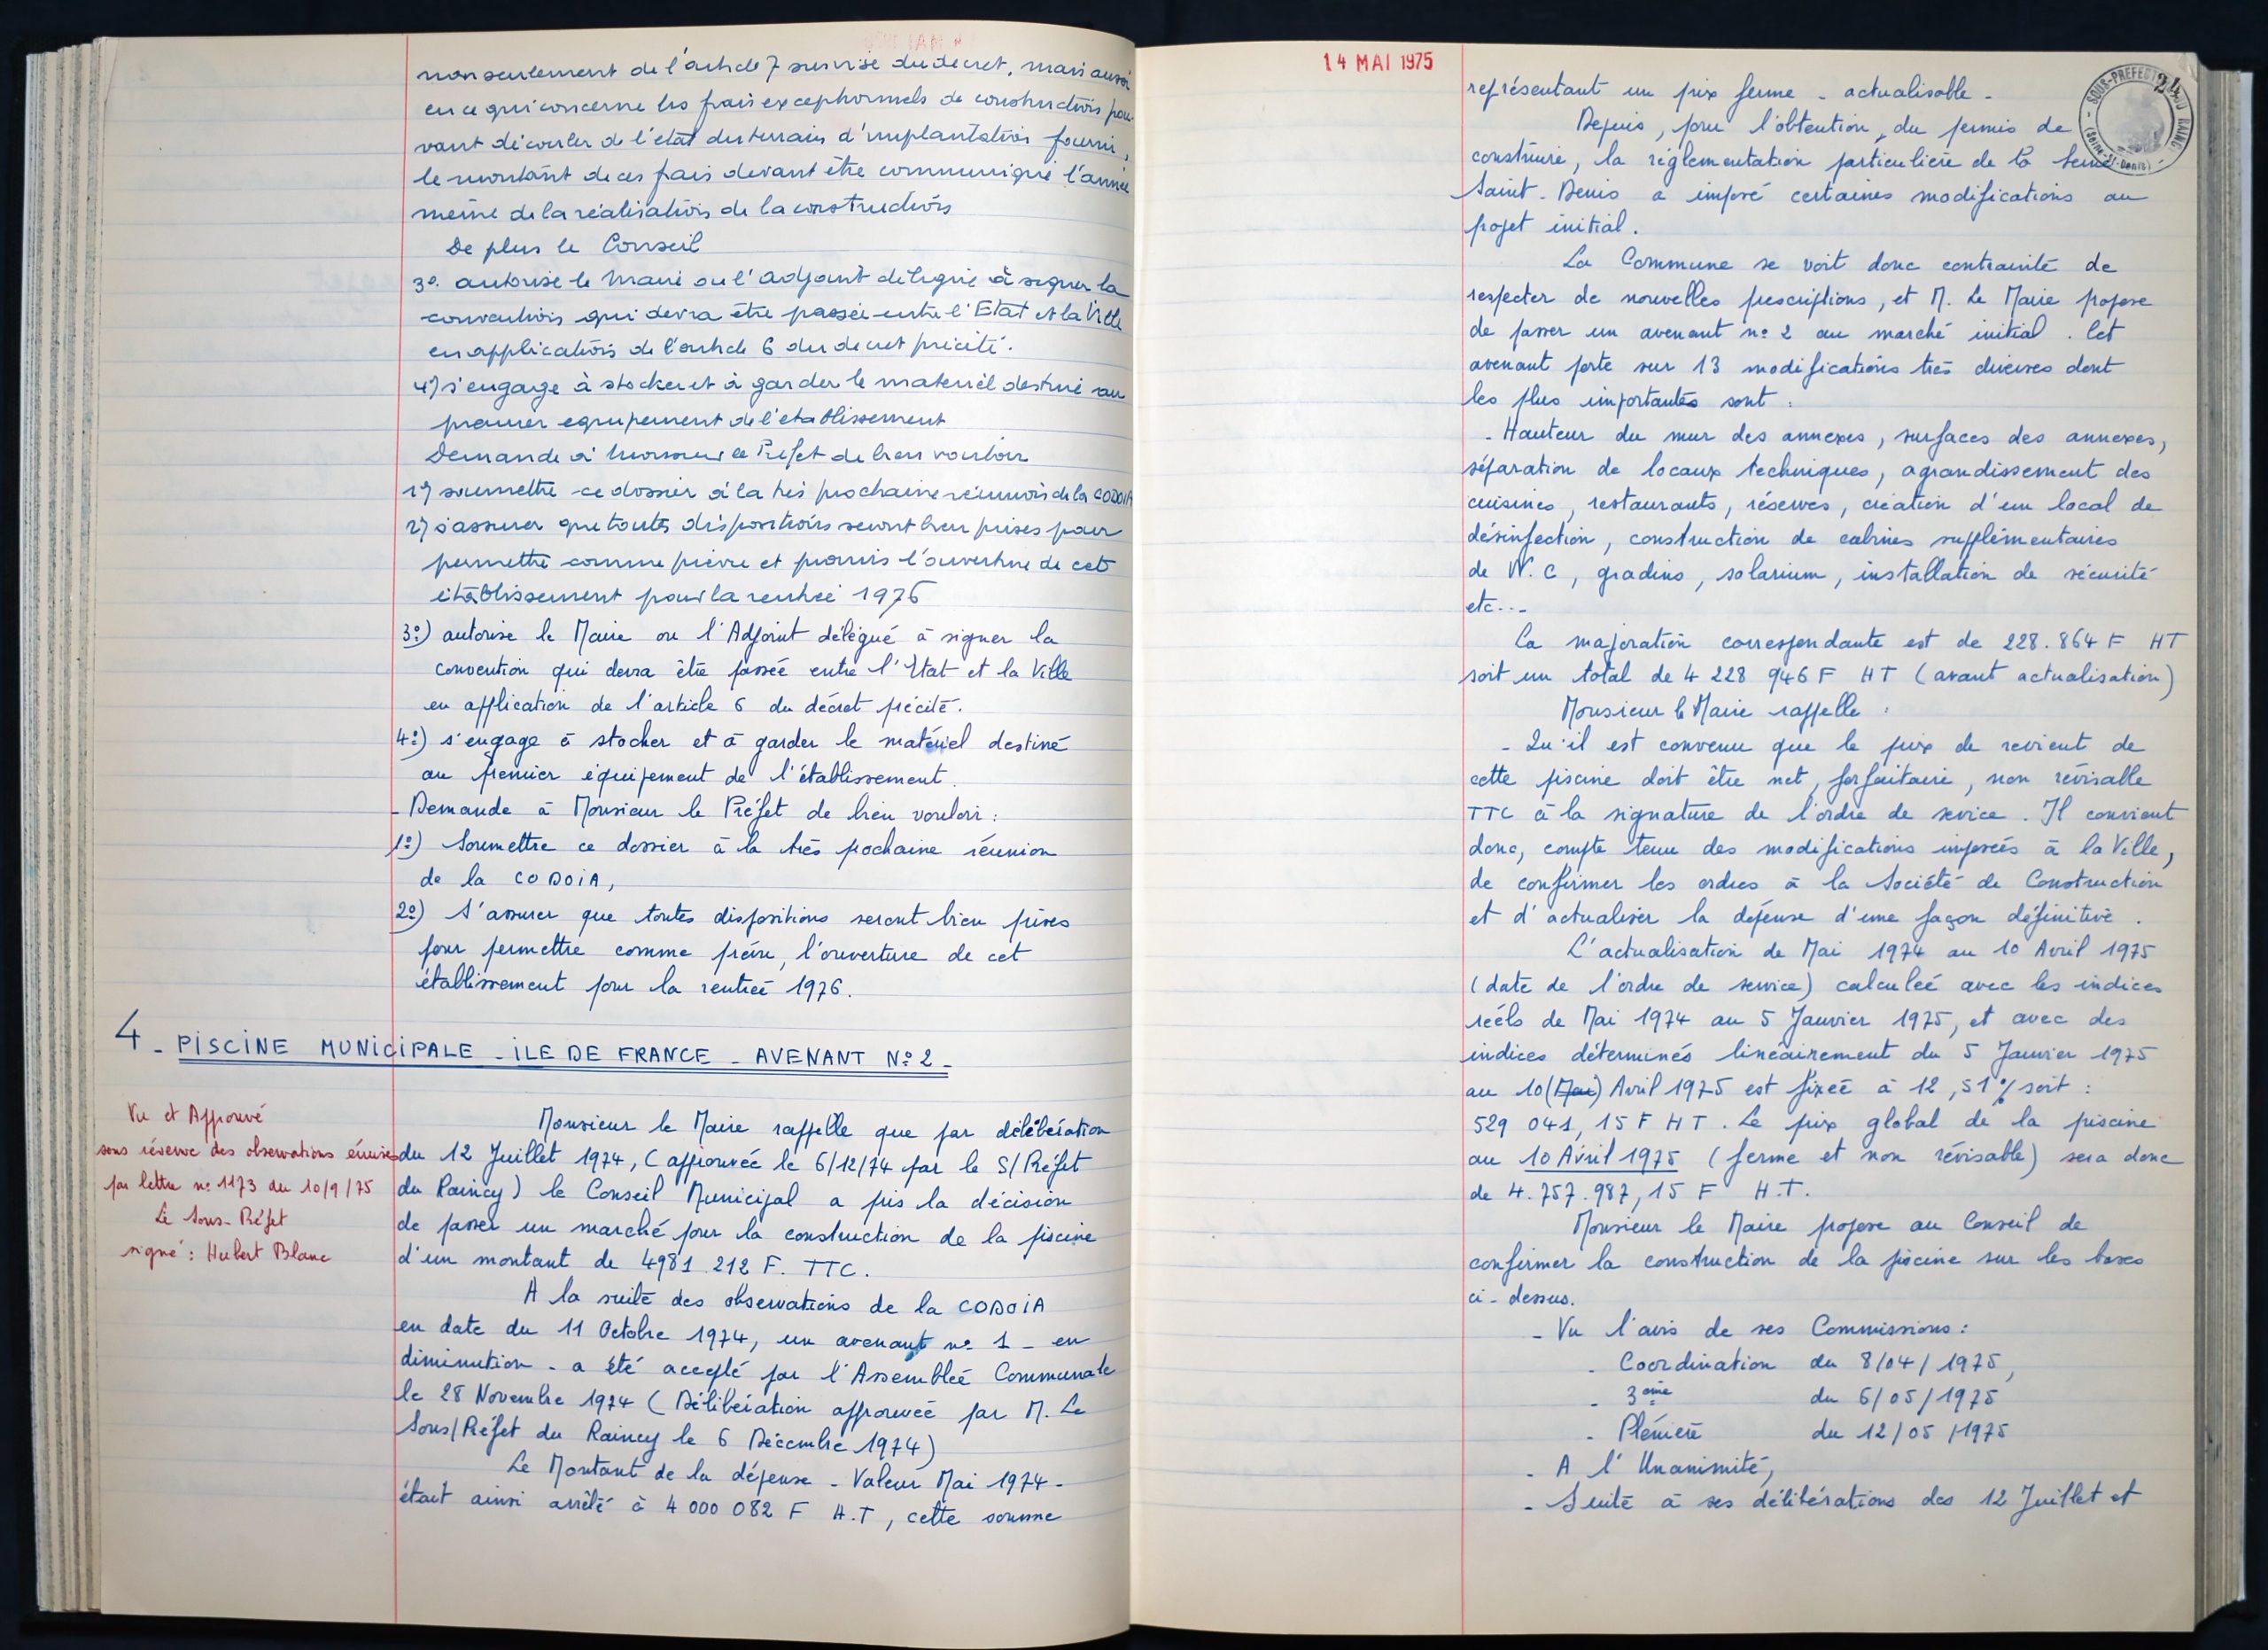 non seulement de l'article 7 survisé du décret, mais aussi
en ce qui concerne les frais exceptionnels de construction pou-
vant découler de l'état du terrain d'implantation fourni,
le montant de ces frais devant être communiqué l'année
même de la réalisation de la construction
De plus le Conseil
3º. autorise le Maire ou l'adjoint délégué à signer la
convention qui devra être passée entre l'Etat et la Ville
en application de l'article 6 du decret précité.
4º) s'engage à stocker et à garder le materiel destiné au
premier equipement de l'etablissement
Demande à Monsieur le Préfet de bien vouloir
1º) soumettre ce dossier à la très prochaine réunion de la CODOIA
2º) s'assurer que toutes dispositions seront bien prises pour
permettre comme prévu et promis l'ouverture de cet
établissement pour la rentrée 1976
3º) autorise le Maire ou l'Adjoint délégué à signer la
convention qui devra être passée entre l'Etat et la Ville
en application de l'article 6 du décret précité.
4º) s'engage à stocker et à garder le matériel destiné
au premier équipement de l'établissement.
- Demande à Monsieur le Préfet de bien vouloir :
1º) Soumettre ce dossier à la très prochaine réunion
de la CODOIA,
2º) S'assurer que toutes dispositions seront bien prises
pour permettre comme prévu, l'ouverture de cet
établissement pour la rentrée 1976.
4 - PISCINE MUNICIPALE - ILE DE FRANCE - AVENANT Nº 2 -
Vu et Approuvé
sous réserve des observations émises
par lettre nº 1173 du 10/9/75
Le Sous-Préfet
signé : Hubert Blanc
Monsieur le Maire rappelle que par délibération
du 12 Juillet 1974, (approuvée le 6/12/74 par le S/Préfet
du Raincy) le Conseil Municipal a pris la décision
de passer un marché pour la construction de la piscine
d'un montant de 4981 212 F. TTC.
A la suite des observations de la CODOIA
en date du 11 Octobre 1974, un avenant nº 1 - en
diminution - a été accepté par l'Assemblée Communale
le 28 Novembre 1974 (Délibération approuvée par M. Le
Sous/Préfet du Raincy le 6 Décembre 1974)
Le Montant de la dépense - Valeur Mai 1974 -
était ainsi arrêté à 4 000 082 F H.T, cette somme
14 MAI 1975
24
SOUS-PREFECTURE DU RAINCY
(Seine-St-Denis)
représentant un prix ferme - actualisable -
Depuis, pour l'obtention, du permis de
construire, la réglementation particulière de la Seine
Saint-Denis a imposé certaines modifications au
projet initial.
La Commune se voit donc contrainte de
respecter de nouvelles prescriptions, et M. Le Maire propose
de passer un avenant nº 2 au marché initial. Cet
avenant porte sur 13 modifications très diverses dont
les plus importantes sont :
- Hauteur du mur des annexes, surfaces des annexes,
séparation de locaux techniques, agrandissement des
cuisines, restaurants, réserves, création d'un local de
désinfection, construction de cabines supplémentaires
de W.C, gradins, solarium, installation de sécurité
etc...
La majoration correspondante est de 228.864 F HT
soit un total de 4 228 946 F HT (avant actualisation)
Monsieur le Maire rappelle :
- Qu'il est convenu que le prix de revient de
cette piscine doit être net, forfaitaire, non révisable
TTC à la signature de l'ordre de sevice. Il convient
donc, compte tenu des modifications imposées à la Ville,
de confirmer les ordres à la Société de Construction
et d'actualiser la dépense d'une façon définitive.
L'actualisation de Mai 1974 au 10 Avril 1975
(date de l'ordre de service) calculée avec les indices
réels de Mai 1974 au 5 Janvier 1975, et avec des
indices déterminés linéairement du 5 Janvier 1975
au 10 (Mai) Avril 1975 est fixée à 12,51% soit :
529 041,15 F HT. Le prix global de la piscine
au 10 Avril 1975 (ferme et non révisable) sera donc
de 4.757.987,15 F H.T.
Monsieur le Maire propose au Conseil de
confirmer la construction de la piscine sur les bases
ci-dessus.
- Vu l'avis de ses Commissions :
- Coordination du 8/04/1975,
- 3ème du 6/05/1975
- Plénière du 12/05/1975
- A l'Unanimité,
- Suite à ses délibérations des 12 Juillet et